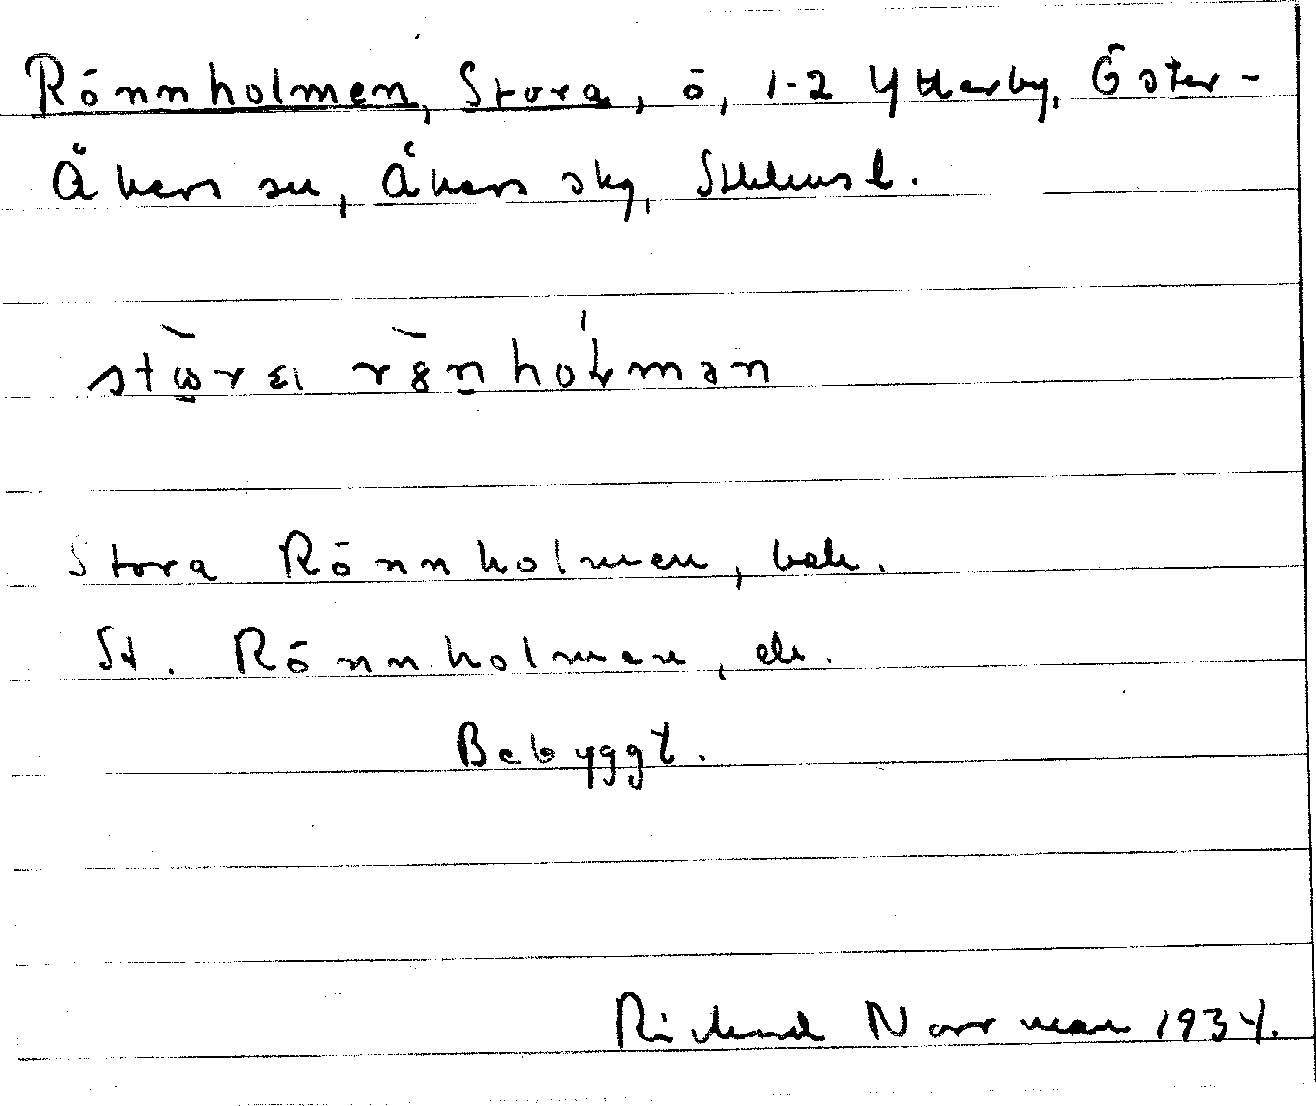 Rönnholmen, Stora, ö, 1-2 Ytterby, Öster-
Åkers sn, Åkers skg, Sthlms l.
Stora Rönnholmen, bok.
St. Rönnholmen, ek.
Bebyggt.
Rickard Norrman 1934.